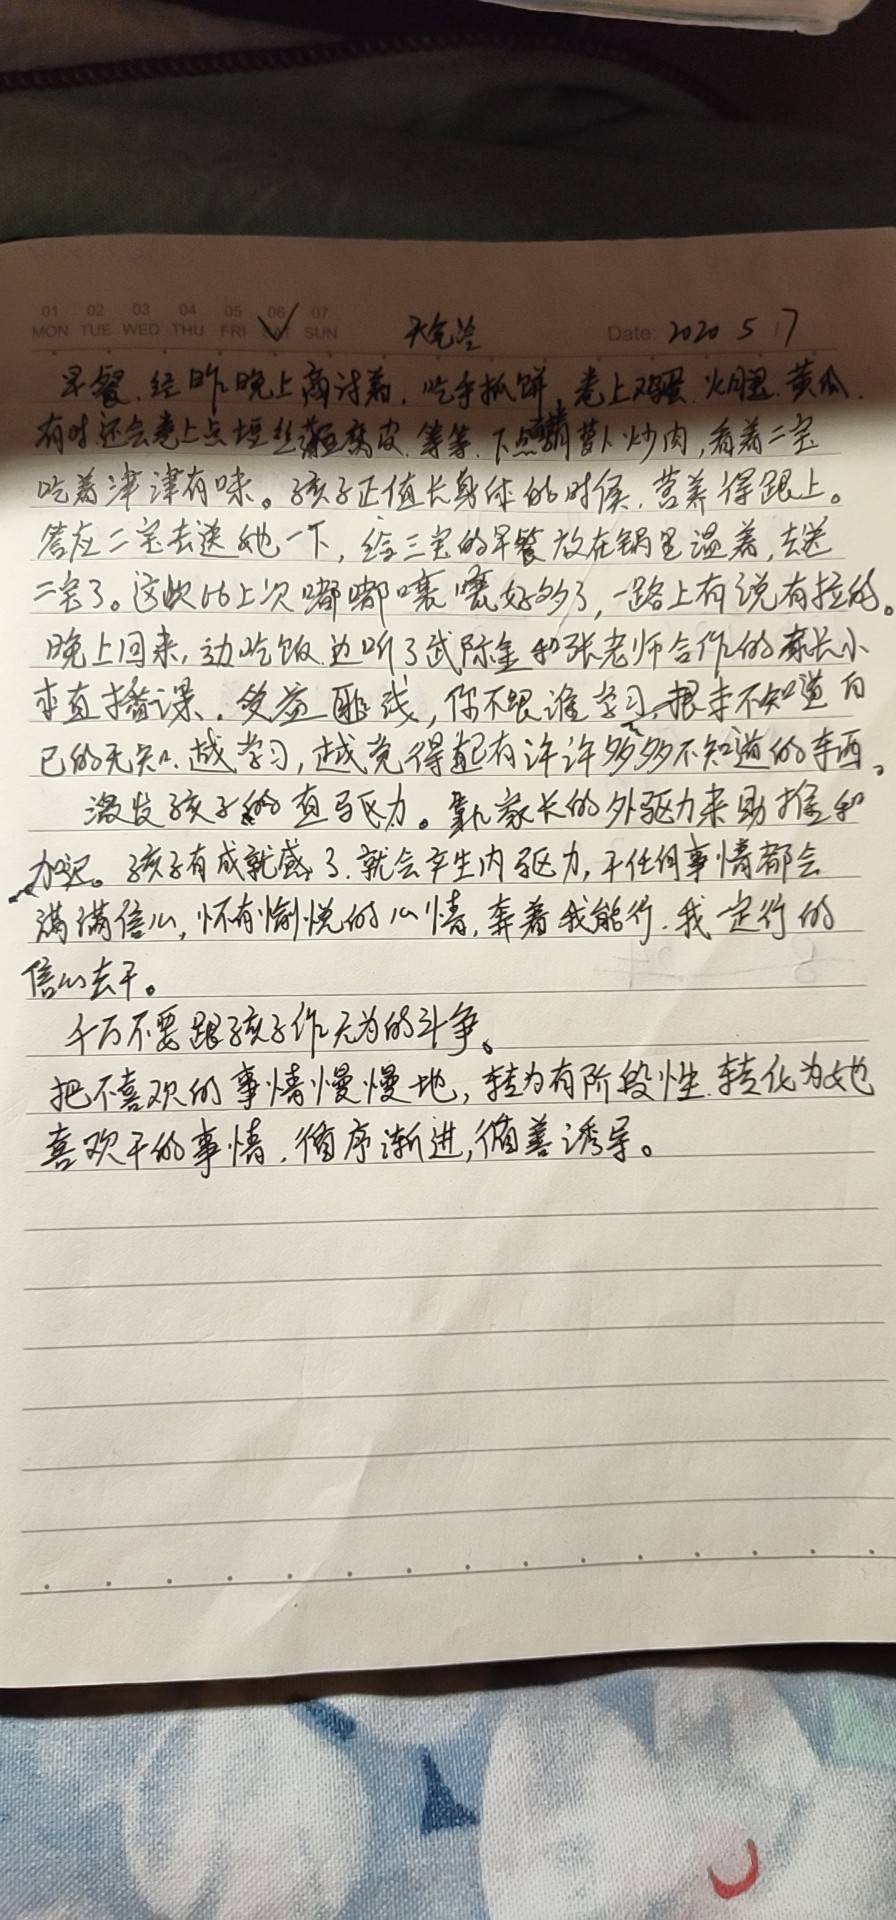 01 02 03 04 05 06 07
MON TUE WED THU FRI SAT SUN 天气冷 Date: 2020 5 17
早餐.经昨晚上商讨着.吃手抓饼,卷上鸡蛋.火腿.黄瓜.
有时还会卷上点土豆丝 豆腐皮.等等.下点胡萝卜炒肉,看着二宝
吃着津津有味。孩子正值长身体的时候.营养得跟上。
答应二宝去送她一下,给三宝的早餐放在锅里温着,去送
二宝了。这次比上次嘟嘟嚷嚷好多了,一路上有说有拉的。
晚上回来,边吃饭边听了武际金和张老师合作的家长小
本直播课.受益匪浅,你不跟谁学习.根本不知道自
己的无知.越学习,越觉得 有许许多多不知道的东西。
激发孩子的 驱力。靠家长的外驱力来助推和
加 。孩子有成就感了.就会产生内驱力,干任何事情都会
满满信心,怀有愉悦的心情,奔着我能行.我一定行的
信心去干。
千万不要跟孩子作无为的斗争。
把不喜欢的事情慢慢地,转为有阶段性.转化为她
喜欢干的事情.循序渐进,循善诱导。